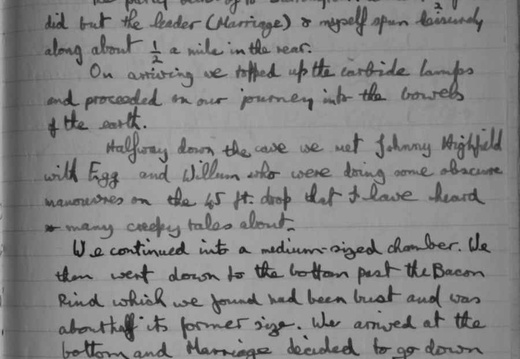 did but the leader (Marriage) & myself spun leisurely
along about ½ a mile in the rear.
On arriving we topped up the carbide lamps
and proceeded on our journey into the bowels
of the earth.
Halfway down the cave we met Johnny Highfield
with Egg and Willum who were doing some obscure
manouvres on the 45 ft. drop that I have heard
many creepy tales about.
We continued into a medium-sized chamber. We
then went down to the bottom past the Bacon
Rind which we found had been bust and was
about half its former size. We arrived at the
bottom and Marriage decided to go down